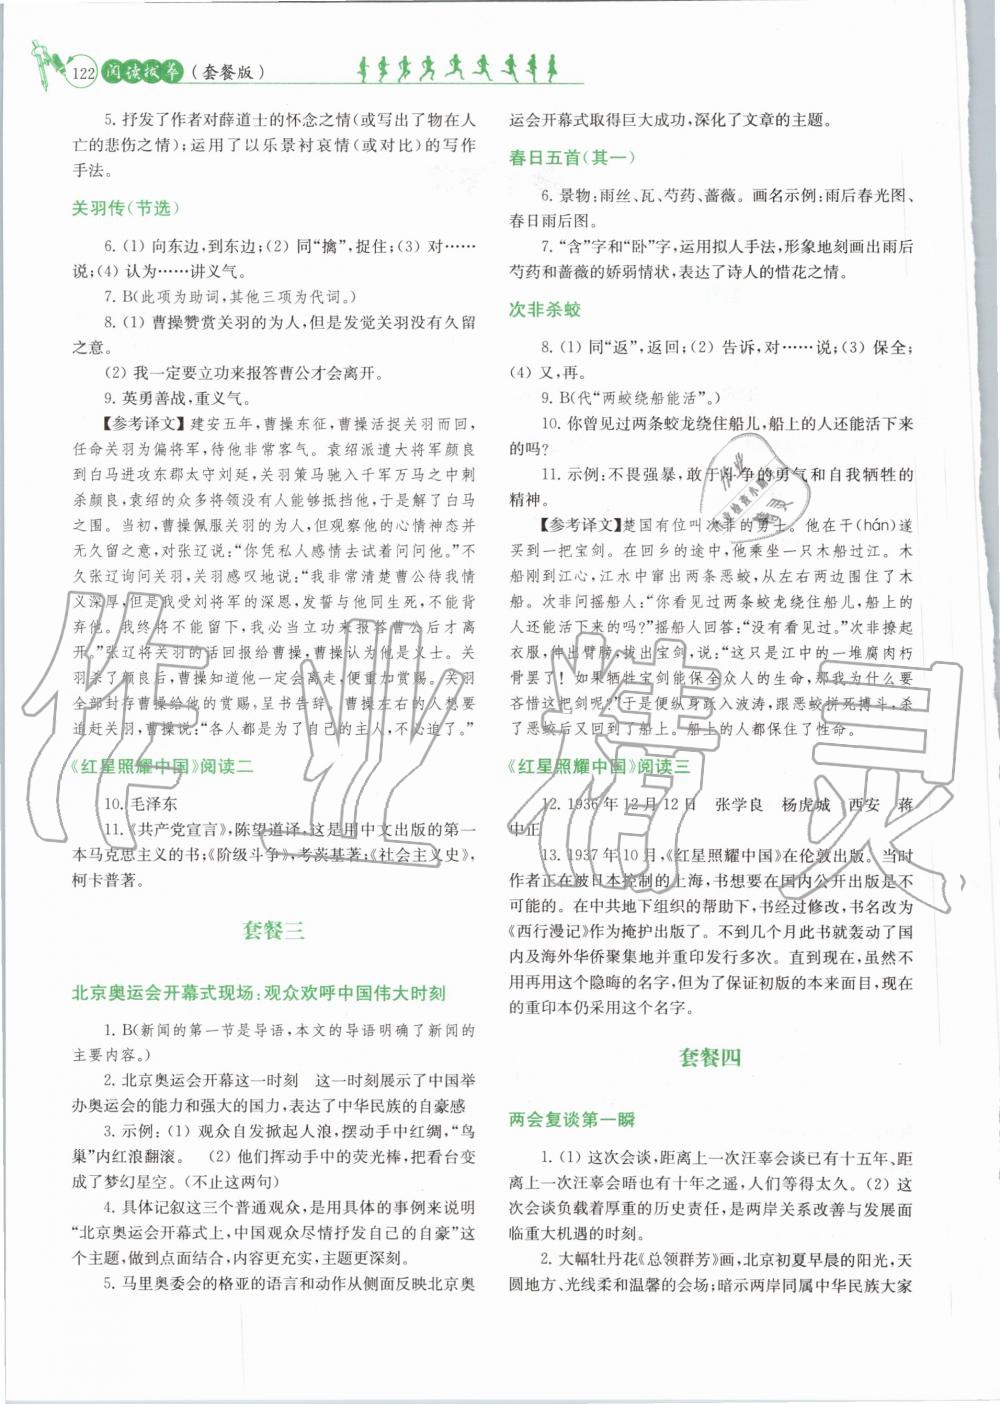 122 阅读拔萃（套餐版）
5. 抒发了作者对薛道士的怀念之情(或写出了物在人
亡的悲伤之情);运用了以乐景衬哀情(或对比)的写作
手法。
关羽传(节选)
6. (1) 向东边,到东边;(2) 同“擒”,捉住;(3) 对……
说;(4) 认为……讲义气。
7. B(此项为助词,其他三项为代词。)
8. (1) 曹操赞赏关羽的为人,但是发觉关羽没有久留
之意。
(2) 我一定要立功来报答曹公才会离开。
9. 英勇善战,重义气。
【参考译文】建安五年,曹操东征,曹操活捉关羽而回,
任命关羽为偏将军,待他非常客气。袁绍派遣大将军颜良
到白马进攻东郡太守刘延,关羽策马驰入千军万马之中刺
杀颜良,袁绍的众多将领没有人能够抵挡他,于是解了白马
之围。当初,曹操佩服关羽的为人,但观察他的心情神态并
无久留之意,对张辽说:“你凭私人感情去试着问问他。”不
久张辽询问关羽,关羽感叹地说:“我非常清楚曹公待我情
义深厚,但是我受刘将军的深恩,发誓与他同生死,不能背
弃他。我终将不能留下,我必当立功来报答曹公后才离
开。”张辽将关羽的话回报给曹操,曹操认为他是义士。关
羽杀了颜良后,曹操知道他一定会离走,便重加赏赐。关羽
全部封存曹操给他的赏赐,呈书告辞。曹操左右的人想要
追赶关羽,曹操说:“各人都是为了自己的主人,不必追。”
《红星照耀中国》阅读二
10. 毛泽东
11. 《共产党宣言》,陈望道译,这是用中文出版的第一
本马克思主义的书;《阶级斗争》,考茨基著;《社会主义史》,
柯卡普著。
套餐三
北京奥运会开幕式现场:观众欢呼中国伟大时刻
1. B(新闻的第一节是导语,本文的导语明确了新闻的
主要内容。)
2. 北京奥运会开幕这一时刻　这一时刻展示了中国举
办奥运会的能力和强大的国力,表达了中华民族的自豪感
3. 示例:(1) 观众自发掀起人浪,摆动手中红绸,“鸟
巢”内红浪翻滚。　(2) 他们挥动手中的荧光棒,把看台变
成了梦幻星空。(不止这两句)
4. 具体记叙这三个普通观众,是用具体的事例来说明
“北京奥运会开幕式上,中国观众尽情抒发自己的自豪”这
个主题,做到点面结合,内容更充实,主题更深刻。
5. 马里奥委会的格亚的语言和动作从侧面反映北京奥
运会开幕式取得巨大成功,深化了文章的主题。
春日五首(其一)
6. 景物:雨丝、瓦、芍药、蔷薇。画名示例:雨后春光图、
春日雨后图。
7. “含”字和“卧”字,运用拟人手法,形象地刻画出雨后
芍药和蔷薇的娇弱情状,表达了诗人的惜花之情。
次非杀蛟
8. (1) 同“返”,返回;(2) 告诉,对……说;(3) 保全;
(4) 又,再。
9. B(代“两蛟绕船能活”。)
10. 你曾见过两条蛟龙绕住船儿,船上的人还能活下来
的吗?
11. 示例:不畏强暴,敢于斗争的勇气和自我牺牲的
精神。
【参考译文】楚国有位叫次非的勇士。他在干(hán)遂
买到一把宝剑。在回乡的途中,他乘坐一只木船过江。木
船刚到江心,江水中窜出两条恶蛟,从左右两边围住了木
船。次非问摇船人:“你看见过两条蛟龙绕住船儿,船上的
人还能活下来的吗?”摇船人回答:“没有看见过。”次非撩起
衣服,伸出臂膀,拔出宝剑,说:“这只是江中的一堆腐肉朽
骨罢了！如果牺牲宝剑能保全众人的生命,那我为什么要
吝惜把这剑呢?”于是便纵身跃入波涛,跟恶蛟拼死搏斗,杀
了恶蛟后又回到了船上。船上的人都保住了性命。
《红星照耀中国》阅读三
12. 1936 年 12 月 12 日　张学良　杨虎城　西安　蒋
中正
13. 1937 年 10 月,《红星照耀中国》在伦敦出版。当时
作者正在被日本控制的上海,书想要在国内公开出版是不
可能的。在中共地下组织的帮助下,书经过修改,书名改为
《西行漫记》作为掩护出版了。不到几个月此书就轰动了国
内及海外华侨聚集地并重印发行多次。直到现在,虽然不
用再用这个隐晦的名字,但为了保证初版的本来面目,现在
的重印本仍采用这个名字。
套餐四
两会复谈第一瞬
1. (1) 这次会谈,距离上一次汪辜会谈已有十五年、距
离上一次汪辜会晤也有十年之遥,人们等得太久。(2) 这
次会谈负载着厚重的历史责任,是两岸关系改善与发展面
临重大机遇的时刻。
2. 大幅牡丹花《总领群芳》画,北京初夏早晨的阳光,天
圆地方、光线柔和温馨的会场;暗示两岸同属中华民族大家
作业精灵